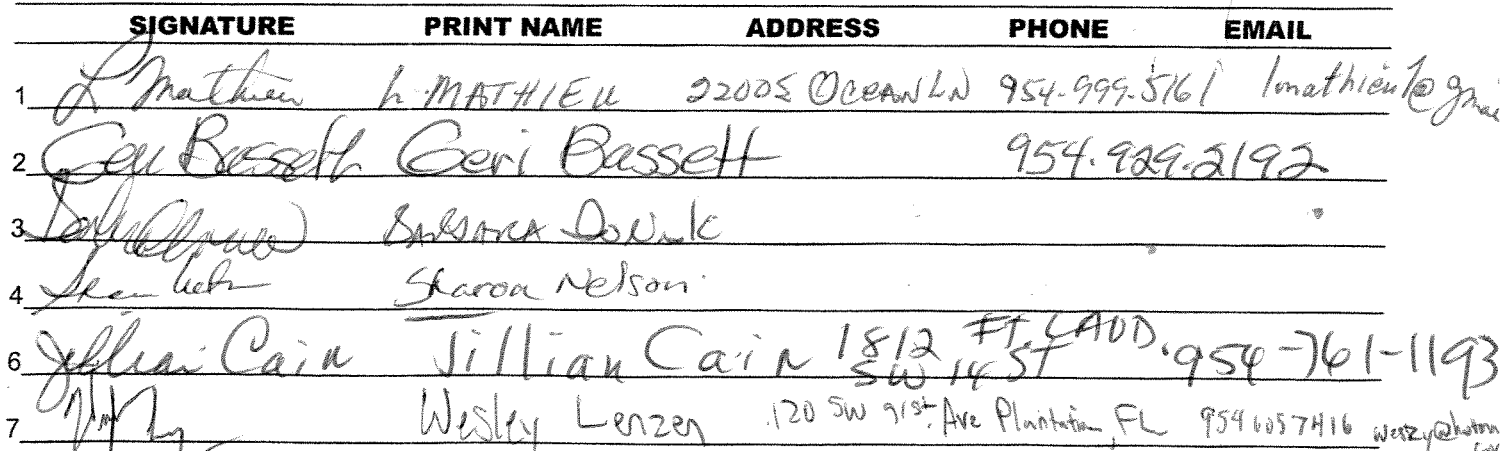 SIGNATURE PRINT NAME ADDRESS PHONE EMAIL
1 L Mathieu L. MATHIEU 2200 S OCEAN LN 954.999.5161 lmathieu1@gmai
2 Geri Bassett Geri Bassett 954.929.2192
3 BARBARA
4 Sharon Nelson
6 Jillian Cain Jillian Cain 1812 SW 14 ST FT. LAUD. 954-761-1193
7 Wesley Lenzen 120 SW 91st Ave Plantation, FL 954 605 7416